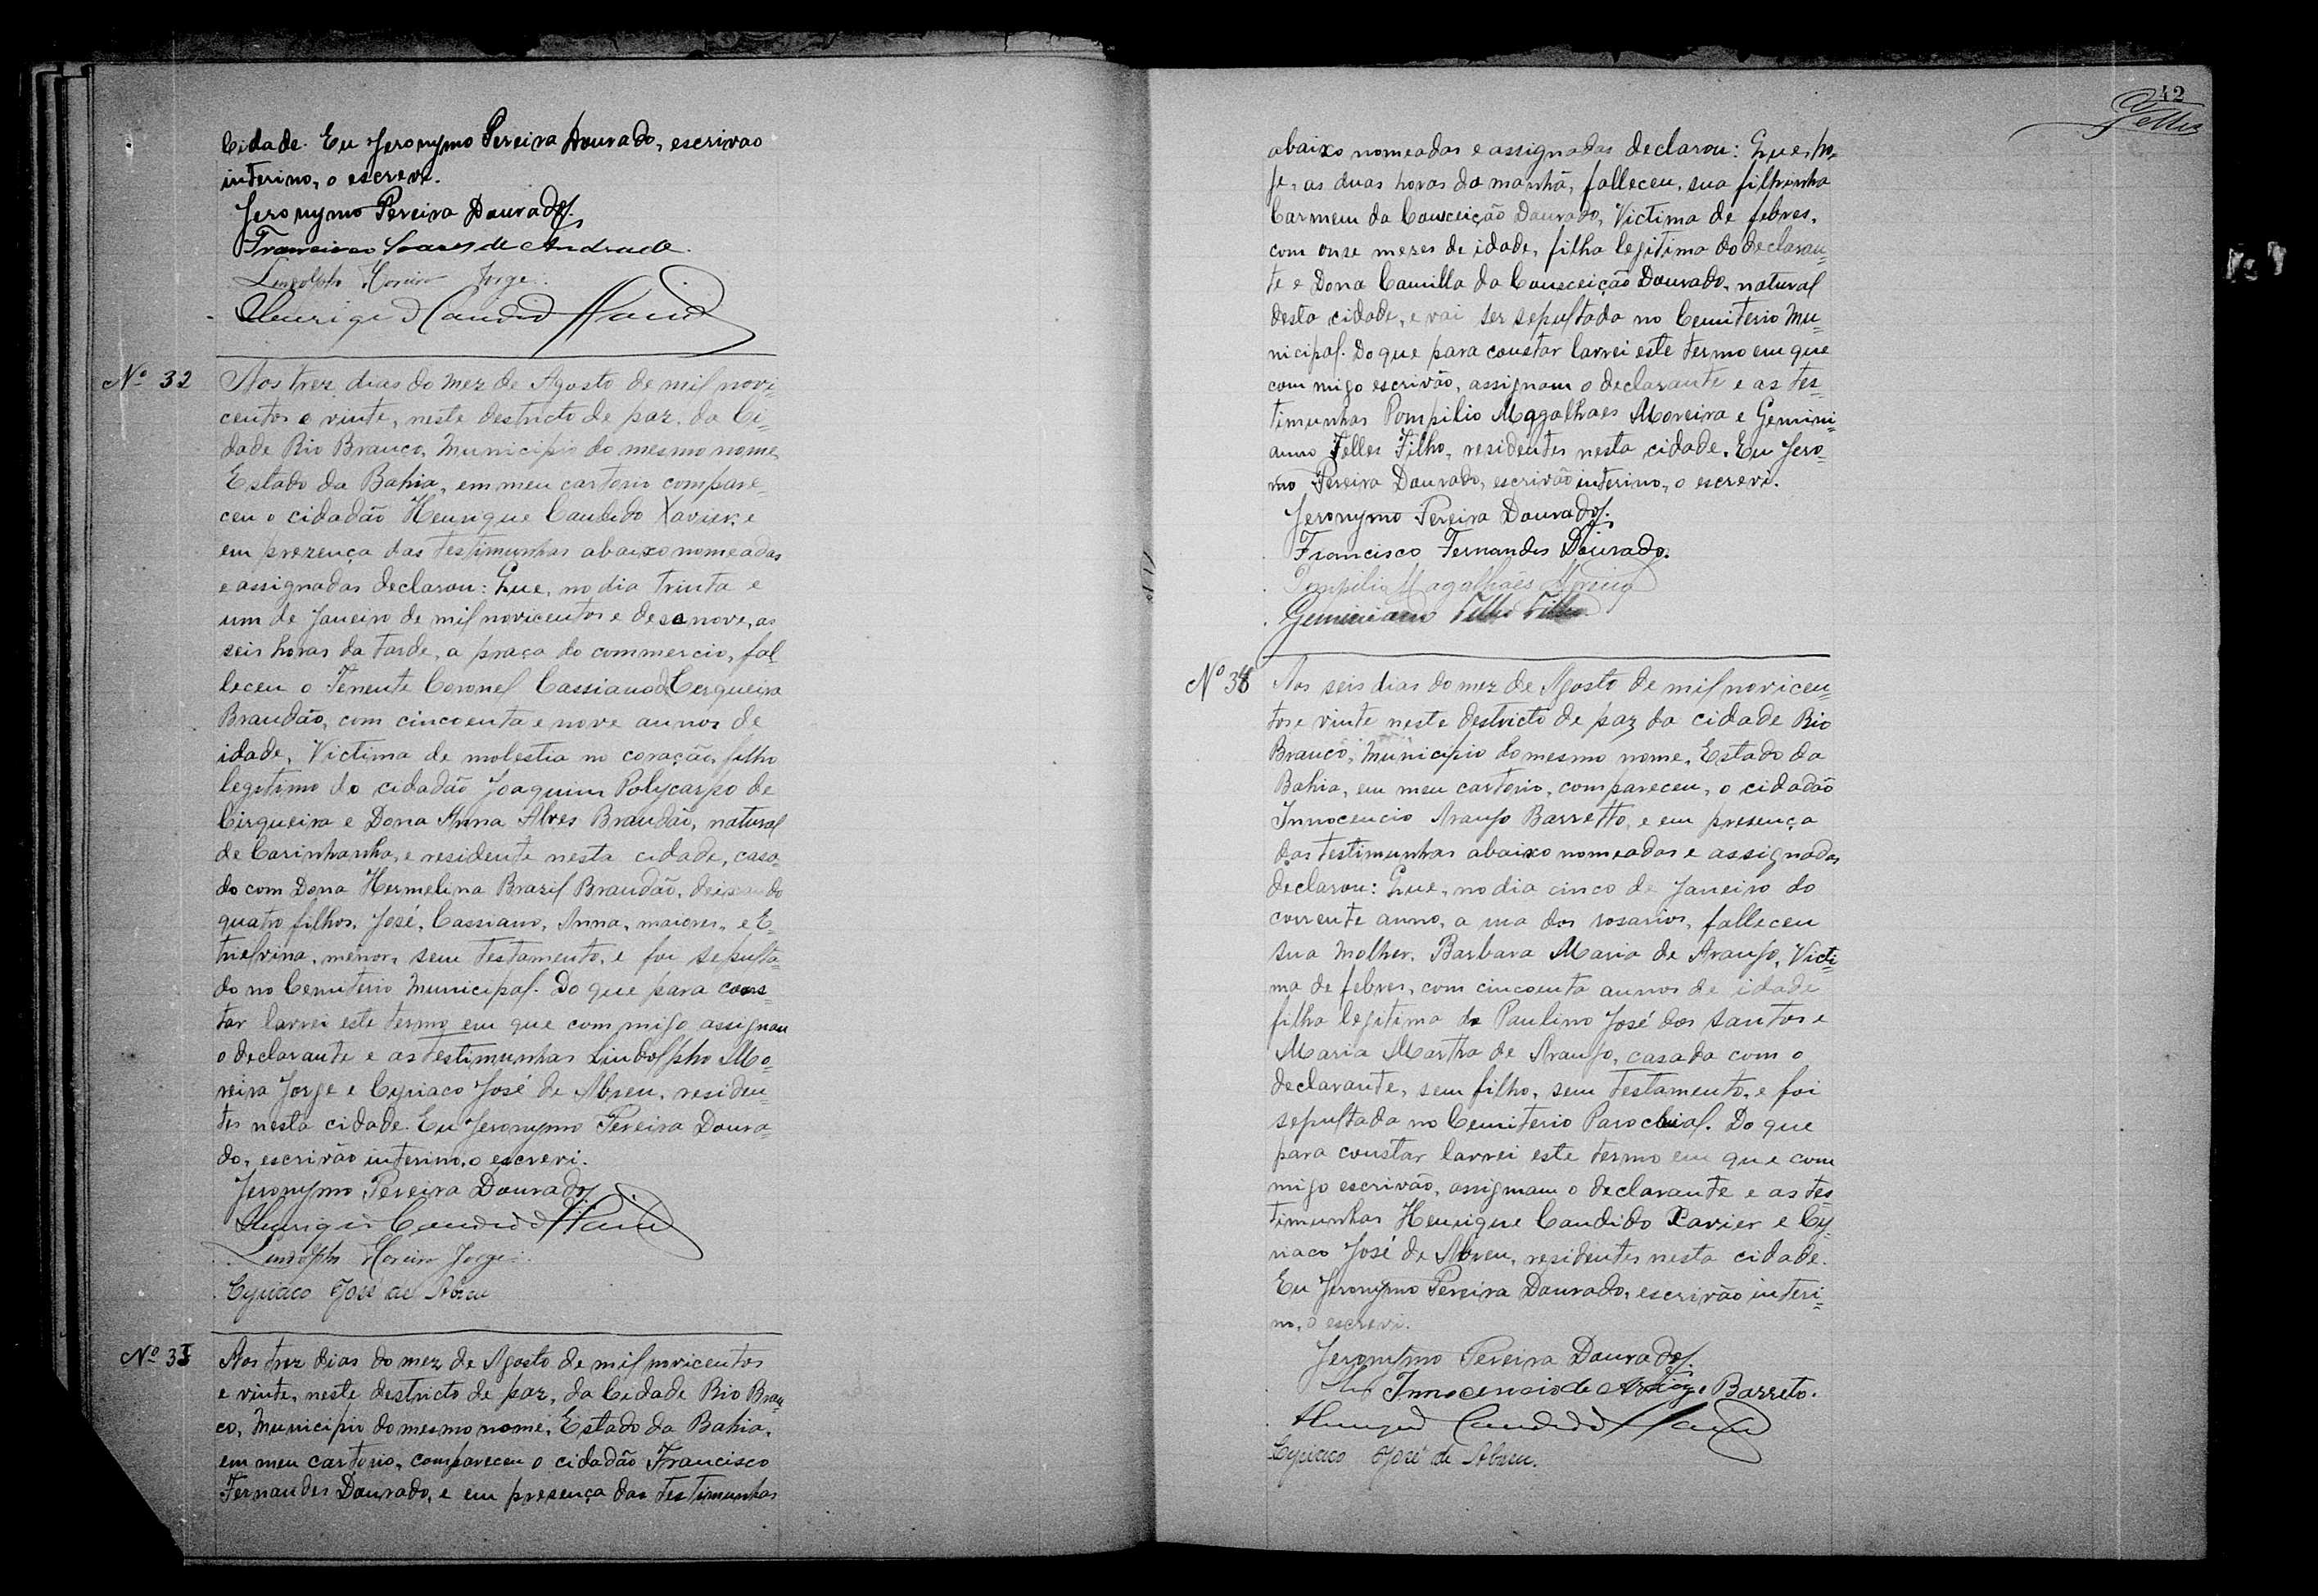 Cidade. Eu Jeronymo Pereira Dourado, escrivao
interino, o escrevi.
Jeronymo Pereira Dourado.
Francisco Soares de Andrade.
Lindolpho Moreira Jorge.
Henrique Candido Xavier
Nº 32
Aos trez dias do mez de Agosto de mil novi=
centos e vinte, neste destricto de paz, da Ci=
dade Rio Branco, Municipio do mesmo nome,
Estado da Bahia, em meu cartorio compare=
ceu o cidadão Henrique Candido Xavier, e
em prezença das testimunhas abaixo nomeadas
e assignadas declarou: Que, no dia trinta e
um de Janeiro de mil novicentos e desenove, as
seis horas da tarde, a praça do commercio, fal=
leceu o Tenente Coronel Cassiano de Cerqueira
Brandão, com cincoenta e nove annos de
idade, Victima de molestia no coração, filho
legitimo do cidadão Joaquim Polycarpo de
Cirqueira e Dona Anna Alves Brandão, natural
de Carinhanha, e residente nesta cidade, casa=
do com Dona Hermelina Brazil Brandão, deixando
quatro filhos, José, Cassiano, Anna, maiores, e E=
thelvina, menor, sem testamento, e foi sepulta=
do no Cemiterio Municipal. Do que para cons=
tar lavrei este termo em que com migo assignam
o declarante e as testimunhas Lindolpho Mo=
reira Jorge e Cyriaco José de Abreu, residen=
tes nesta cidade. Eu Jeronymo Pereira Doura=
do, escrivão interino, o escrevi.
Jeronymo Pereira Dourado.
Henrique Candido Xavier
Lindolpho Moreira Jorge.
Cyriaco José de Abreu
Nº 33
Aos trez dias do mez de Agosto de mil novicentos
e vinte, neste destricto de paz, da Cidade Rio Bran=
co, Municipio do mesmo nome, Estado da Bahia,
em meu cartorio, compareceu o cidadão Francisco
Fernandes Dourado, e em presença das testimunhas
42
Telles
abaixo nomeadas e assignadas declarou: Que, ho=
je, as duas horas da manhã, falleceu, sua filhinha
Carmem da Conceição Dourado, Victima de febres,
com onze mezes de idade, filha legitima do declaran=
te e Dona Camilla da Conceição Dourado, natural
desta cidade, e vai ser sepultada no Cemiterio Mu=
nicipal. Do que para constar lavrei este termo em que
com migo escrivão, assignam o declarante e as tes=
timunhas Pompilio Magalhaes Moreira e Gemini=
anno Telles Filho, residentes nesta cidade. Eu Jero=
mo Pereira Dourado, escrivão interino, o escrevi.
Jeronymo Pereira Dourado.
Francisco Fernandes Dourado.
Pompilio Magalhães Moreira
Geminiano Telles Filho
Nº 34
Aos seis dias do mez de Agosto de mil novicen=
tos e vinte neste destricto de paz da cidade Rio
Branco, Municipio do mesmo nome, Estado da
Bahia, em meu cartorio, compareceu, o cidadão
Innocencio Araujo Barretto, e em presença
das testimunhas abaixo nomeadas e assignadas
declarou: Que, no dia cinco de Janeiro do
corrente anno, a rua dos rosarios, falleceu
sua molher, Barbara Maria de Araujo, Victi=
ma de febres, com cincoenta annos de idade
filha legitima de Paulino José dos Santos e
Maria Martha de Araujo, casada com o
declarante, sem filho, sem testamento, e foi
sepultada no Cemiterio Parochial. Do que
para constar lavrei este termo em que com
migo escrivão, assignam o declarante e as tes=
timunhas Henrique Candido Xavier e Cy=
riaco José de Abreu, residentes nesta cidade.
Eu Jeronymo Pereira Dourado, escrivão interi=
no, o escrevi.
Jeronymo Pereira Dourado.
Innocencio de Araujo Barreto.
Henrique Candido Xavier
Cyriaco José de Abreu.